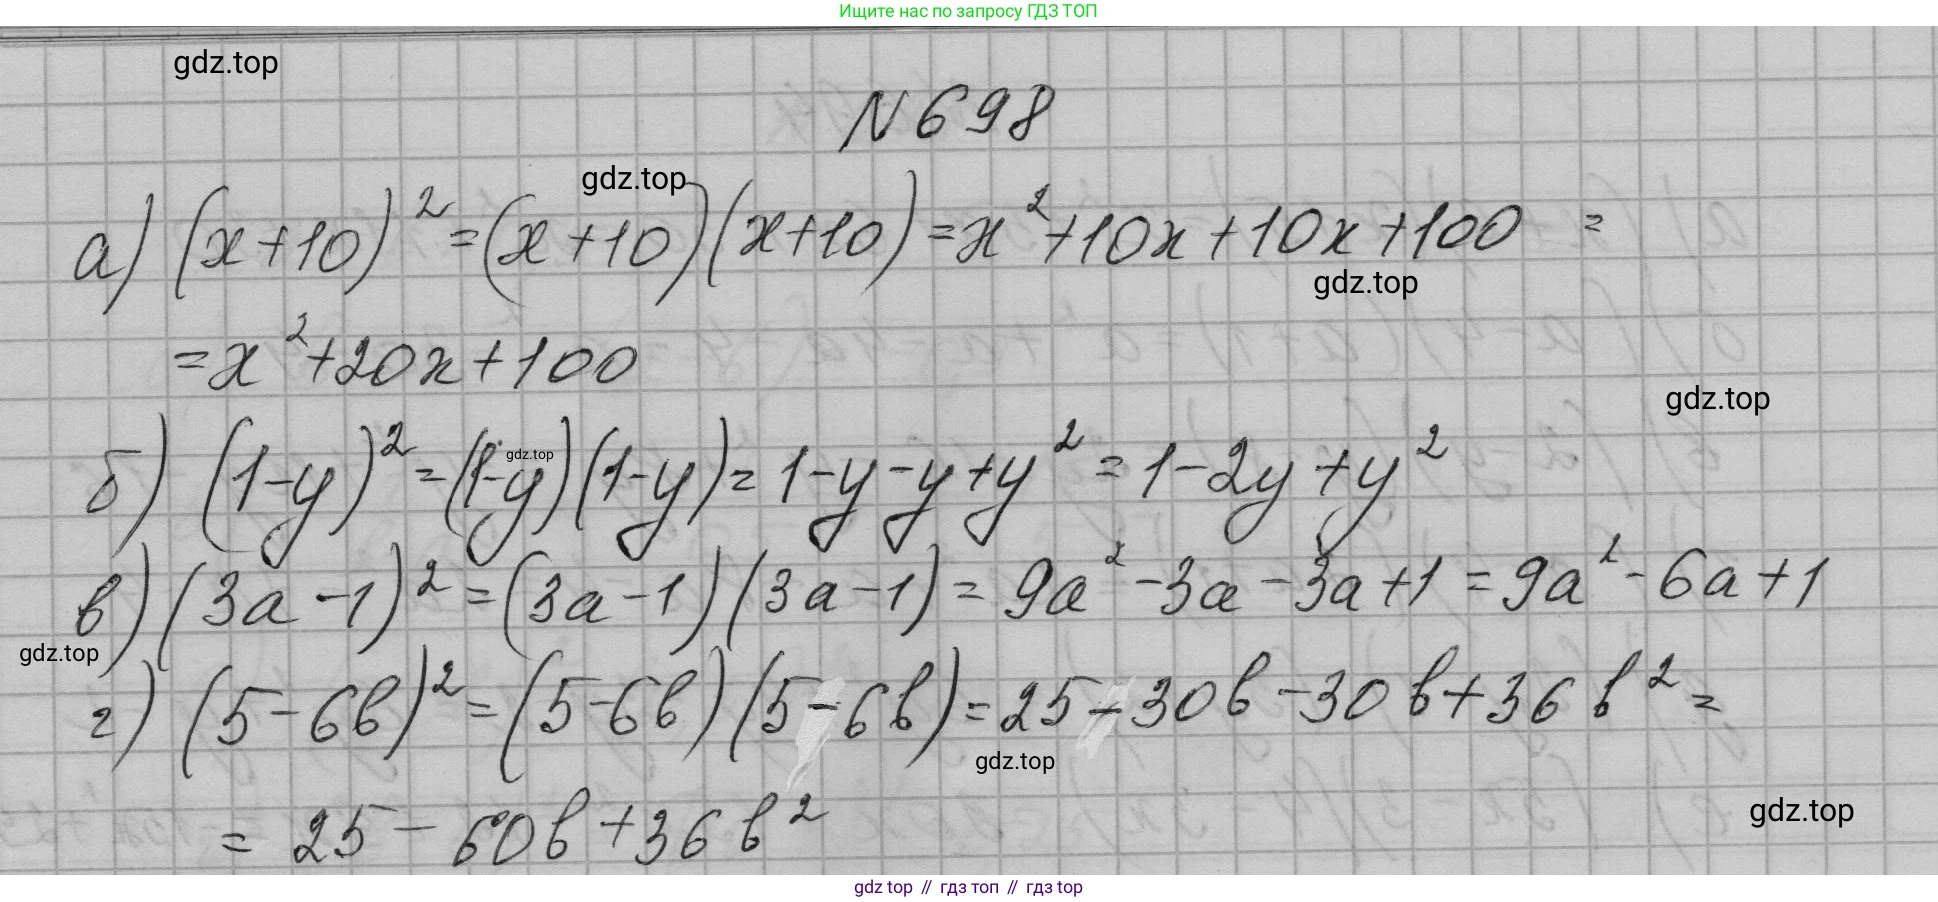 Ищите нас по запросу ГДЗ ТОП
gdz.top
N 698
gdz.top
а) (x+10)² = (x+10)(x+10) = x²+10x+10x+100 =
gdz.top
= x²+20x+100
gdz.top
б) (1-y)² = (1-y)(1-y) = 1-y-y+y² = 1-2y+y²
gdz.top
в) (3a-1)² = (3a-1)(3a-1) = 9a²-3a-3a+1 = 9a²-6a+1
gdz.top
г) (5-6b)² = (5-6b)(5-6b) = 25-30b-30b+36b² =
gdz.top
gdz.top
= 25-60b+36b²
gdz top // гдз топ // гдз top